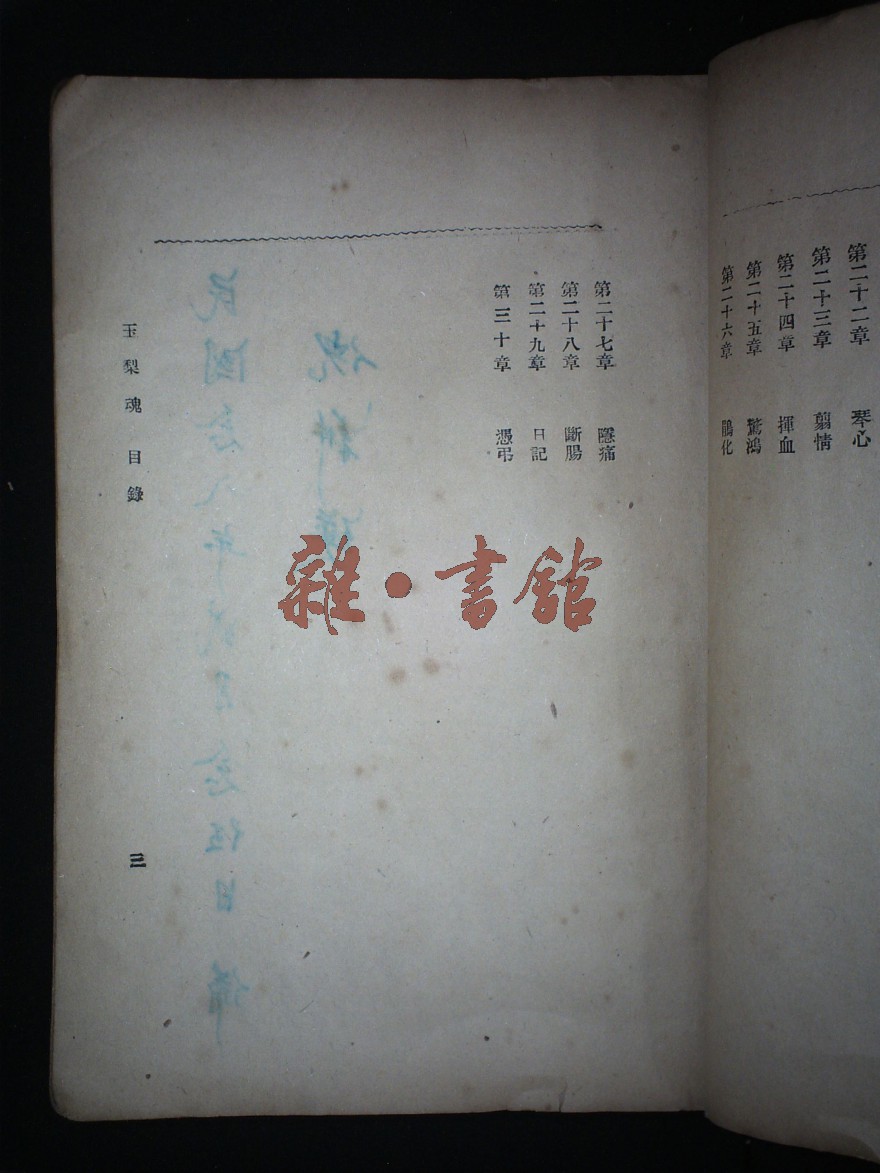 第二十二章 琴心
第二十三章 翦情
第二十四章 揮血
第二十五章 驚鴻
第二十六章 鵑化
第二十七章 隱痛
第二十八章 斷腸
第二十九章 日記
第三十章 憑弔
玉梨魂 目錄
三
雜·書館
民國
年
日